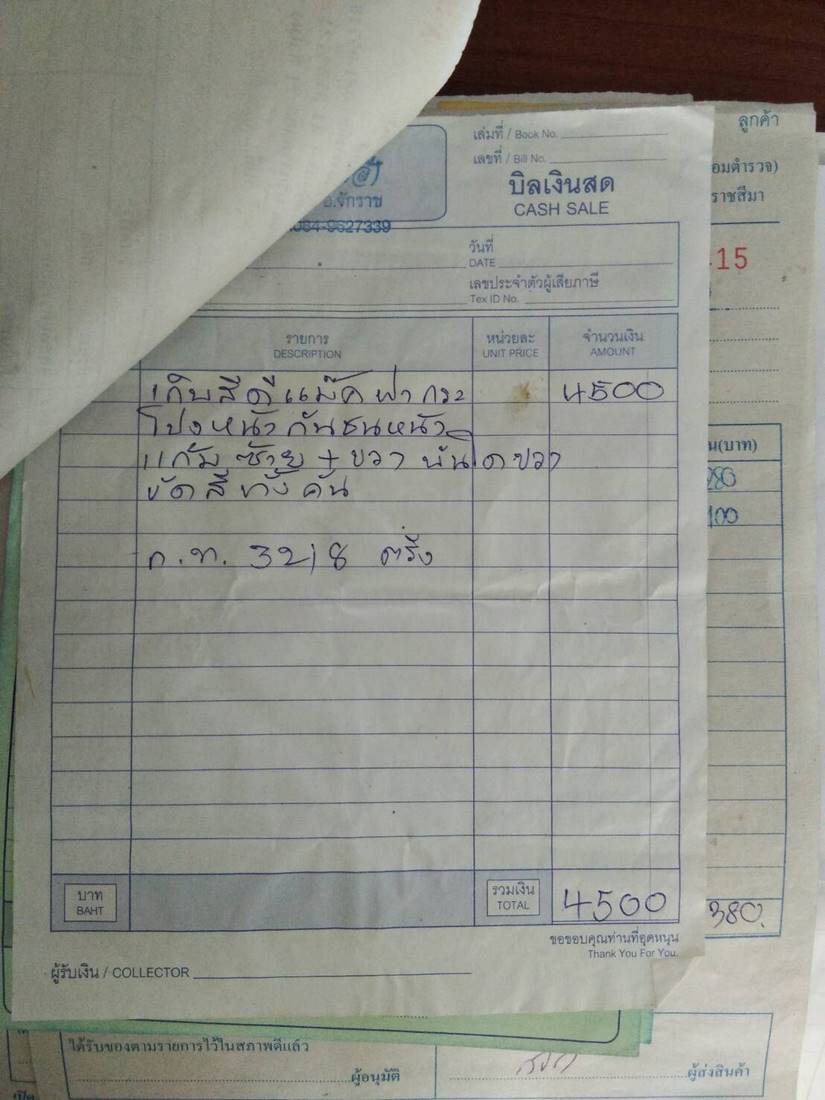 เล่มที่ / Book No.
เลขที่ / Bill No.
บิลเงินสด
CASH SALE
อ.จักราช
084-9627339
วันที่
DATE
เลขประจำตัวผู้เสียภาษี
Tex ID No.
รายการ หน่วยละ จำนวนเงิน
DESCRIPTION UNIT PRICE AMOUNT
เก็บสีดีแม๊คฝากระ 4500
โปงหน้ากันชนหน้า
แก้มซ้าย + ขวา
ขัดสีทั้งคัน
ก.ท. 3218 ตรัง
บาท รวมเงิน 4500
BAHT TOTAL
ขอขอบคุณท่านที่อุดหนุน
Thank You For You.
ผู้รับเงิน / COLLECTOR
ลูกค้า
อมตำรวจ)
ราชสีมา
15
น(บาท)
280
100
380
ได้รับของตามรายการไว้ในสภาพดีแล้ว
ผู้อนุมัติ
ผู้ส่งสินค้า